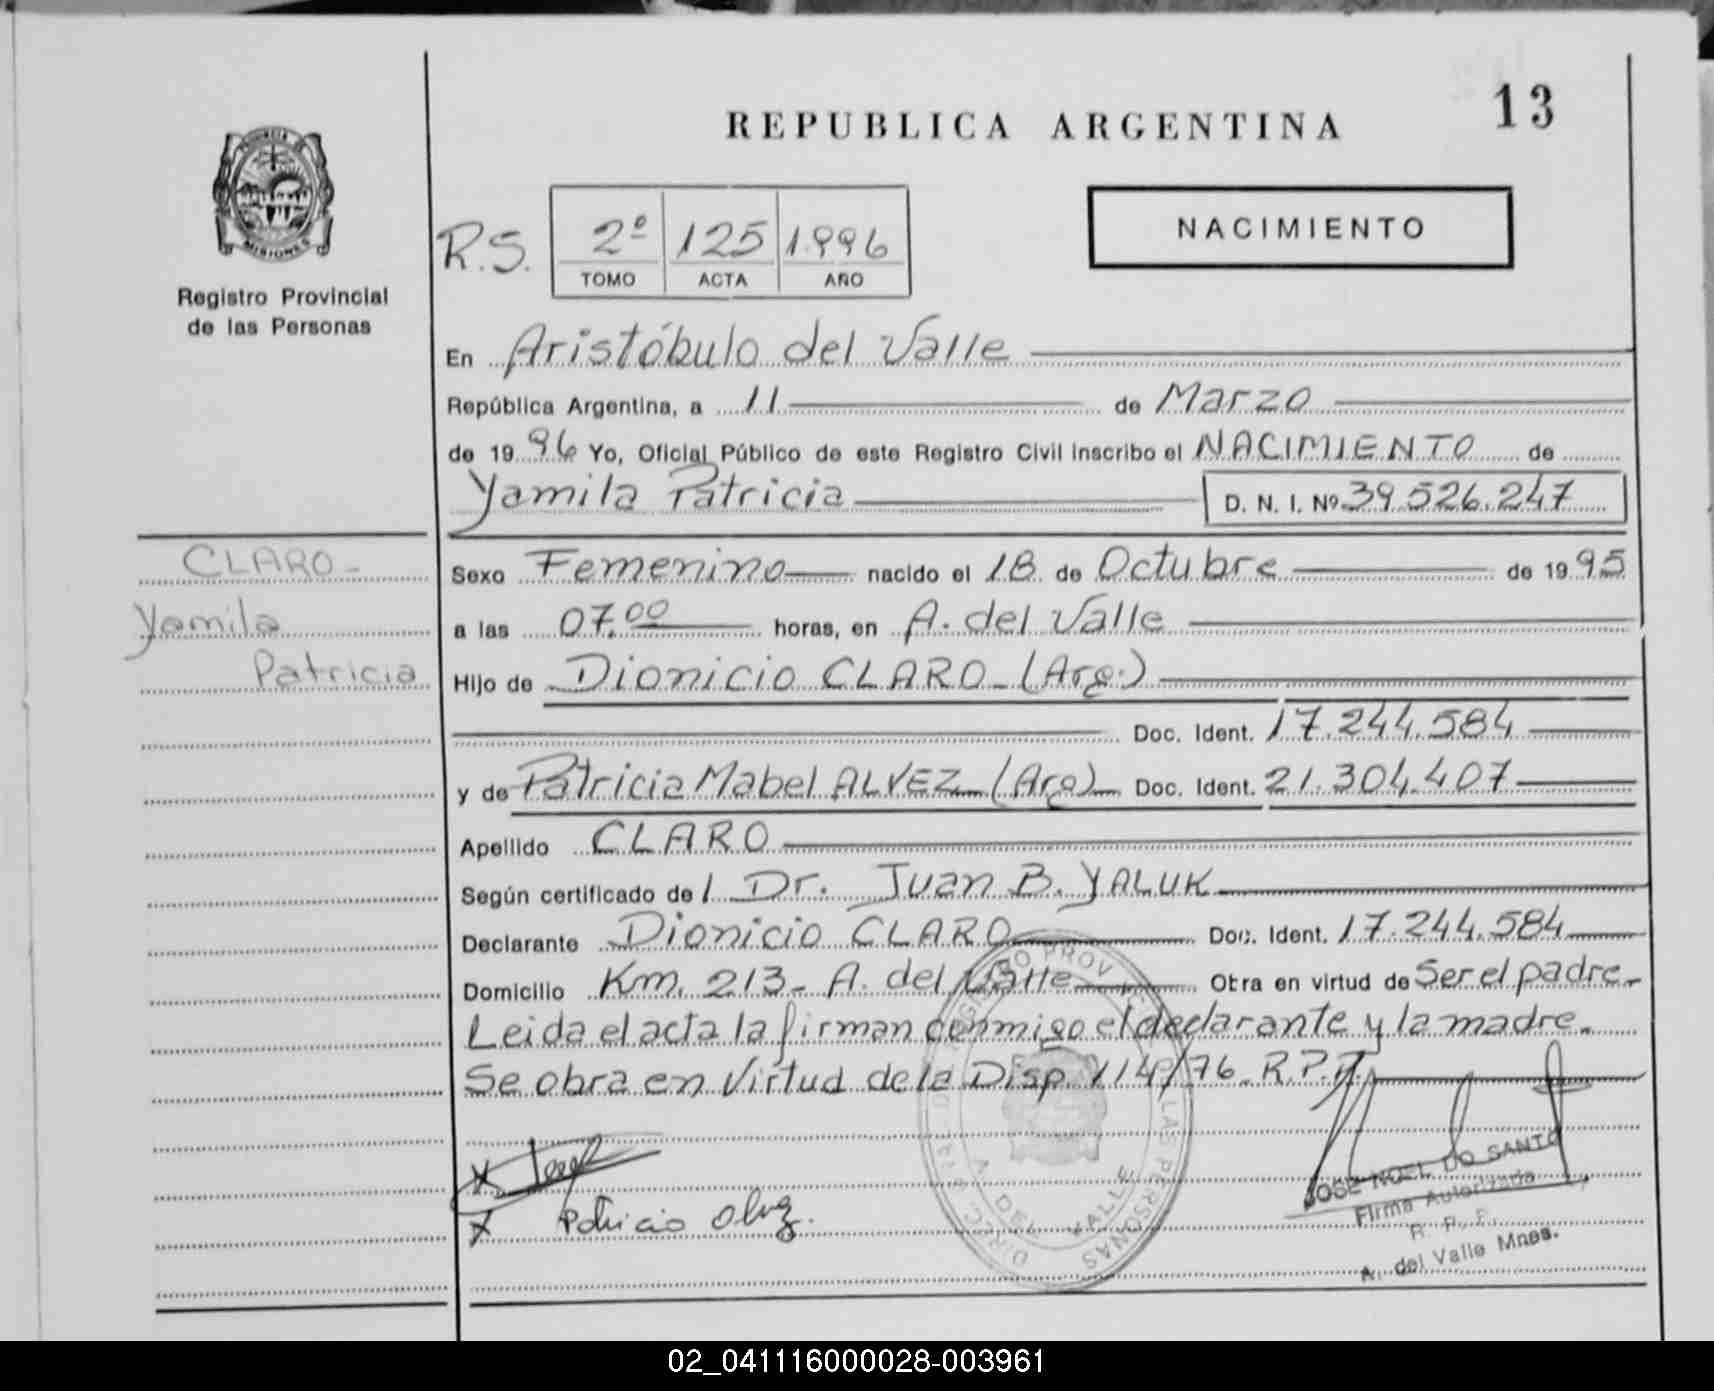 13
REPUBLICA ARGENTINA
PROVINCIA
MISIONES
Registro Provincial
de las Personas
R.S. 2º 125 1.996
TOMO ACTA AÑO
NACIMIENTO
En Aristóbulo del Valle
República Argentina, a 11 de Marzo
de 19 96 Yo, Oficial Público de este Registro Civil inscribo el NACIMIENTO de
Yamila Patricia D. N. I. Nº 39.526.247
CLARO-
Yamila
Patricia
Sexo Femenino nacido el 18 de Octubre de 19 95
a las 07,00 horas, en A. del Valle
Hijo de Dionicio CLARO-(Arg.)
Doc. Ident. 17.244.584
y de Patricia Mabel ALVEZ (Arg) Doc. Ident. 21.304.407
Apellido CLARO
Según certificado de Dr. Juan B. YALUK
Declarante Dionicio CLARO Doc. Ident. 17.244.584
Domicilio Km. 213- A. del Valle Obra en virtud de Ser el padre.-
Leida el acta la firman conmigo el declarante y la madre.
Se obra en Virtud de la Disp. 114/76. R.P.P.
X
X
JOSE NOEL DO SANTO
Firma Autorizada
R. P. P.
A. del Valle Mnes.
A. DEL VALLE
LAS PERSONAS
02_041116000028-003961